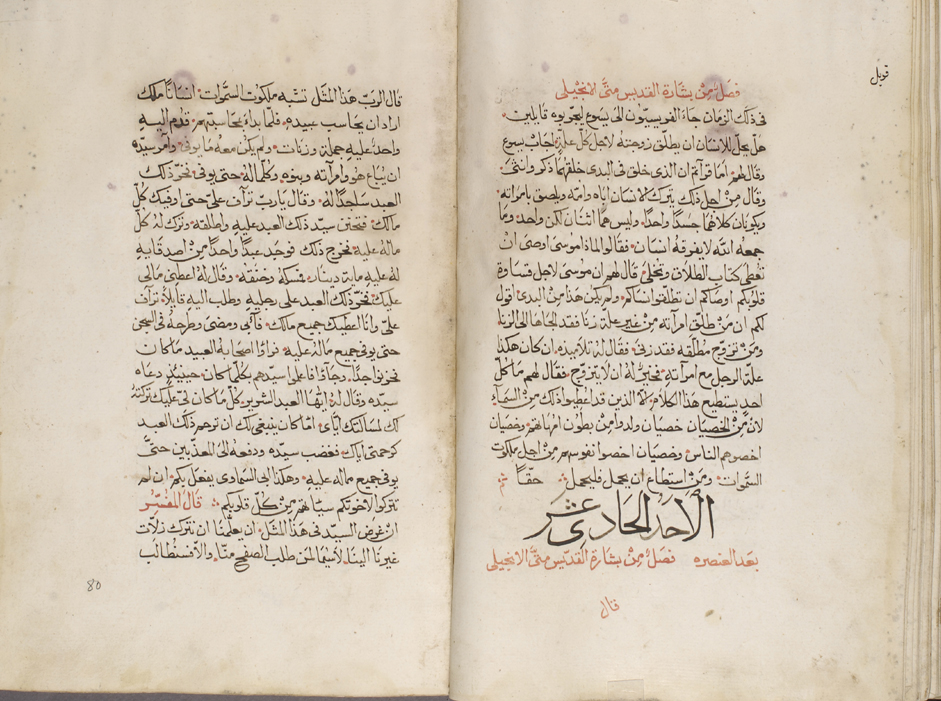 قوبل
فصل من بشارة القديس متى الانجيلى
فى ذلك الزمان جاء الفريسيّون الى يسوع ليجربوه قايلين
هل يحل للانسان ان يطلق زوجته لاجل كل علة اجاب يسوع
وقال لهم اما قرأتم ان الذى خلق فى البدى خلقهما ذكر وانثى
وقال من اجل ذلك يترك الانسان اباه وامه ويلصق بامراته
ويكونان كلاهما جسدًا واحدًا وليس هما اثنان لكن واحد وما
جمعه الله لا يفرقه انسان فقالوا لماذا موسى اوصى ان
تعطى كتاب الطلاق وتخلى قال لهم ان موسى لاجل قساوة
قلوبكم اوصاكم ان تطلقوا نساكم ولم يكن هذا من البدى اقول
لكم ان من طلق امرآته من غير علة زنا فقد الجاها الى الزنا
ومن تزوج مطلقه فقد زنى فقال له تلاميذه ان كان هكذا
علة الرجل مع امرآته فخير له ان لا يتزوج فقال لهم ما كل
احد يستطيع هذا الكلام الا الذين قد اعطيوا ذلك من السماء
لان من الخصيان خصيان ولدوا من بطون امهاتهم وخصيان
اخصوهم الناس وخصيان اخصوا نفوسهم من اجل ملكوت
السموات ومن استطاع ان يحمل فليحمل حقًا
الاحد الحادى عشر
بعد العنصره فصل من بشارة القديس متى الانجيلى
قال
قال الرب هذا المثل تشبه ملكوت السموات انسانًا ملك
اراد ان يحاسب عبيده فلما بداء بمحاسبتهم قدم اليه
واحد عليه جملة وزنات ولم يكن معه ما يوفى وآمر سيده
ان يباع هو وامرآته وبنوه وكلما له حتى يوفى فخر ذلك
العبد ساجدًا له وقال يارب ترآف علي حتى اوفيك كل
مالك فتحنن سيد ذلك العبد عليه واطلقه وترك له كل
ماله عليه فخرج ذلك فوجد عبدًا واحدًا من اصدقايه
له عليه ماية دينار فمسكه وخنقه وقال له اعطنى مالى
عليك فخر ذلك العبد على رجليه وطلب اليه قايلا ترآف
علي وانا اعطيك جميع مالك فآبى ومضى وطرحه فى السجن
حتى يوفى جميع ماله عليه فراوا اصحابه العبيد ما كان
فحزنوا جدًا وجآوا فاعلموا سيدهم بكلما كان حينيذ دعاه
سيده وقال له ايها العبد الشرير كل ما كان لى عليك تركته
لك لمسالتك اياى اما كان ينبغى لك ان ترحم ذلك العبد
كرحمتى اياك فغضب سيده ودفعه الى المعذبين حتى
يوفى جميع ماله عليه وهكذا ابى السماوى يفعل بكم ان لم
تتركوا لاخوتكم سياتهم من كل قلوبكم قال المفسر
ان غرض السيد فى هذا المثل ان يعلمنا ان نترك زلات
غيرنا الينا لاسيما لمن طلب الصفح منا والا فسنطالب
80